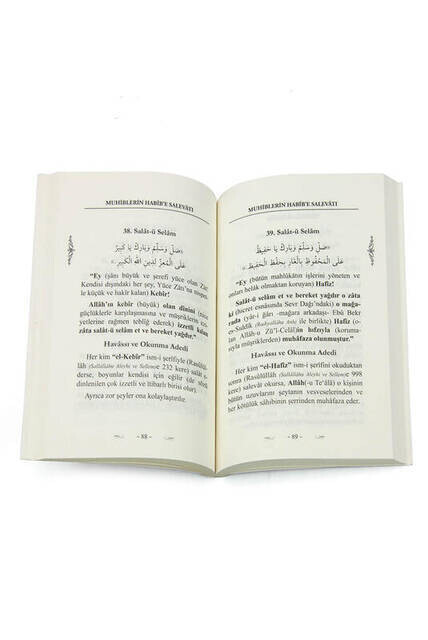 MUHİBLERİN HABÎB'E SALEVÂTI
38. Salât-ü Selâm
«صَلِّ وَسَلِّمْ وَبَارِكْ يَا كَبِيرُ
عَلَى الْمُعَزِّ لِدِينِ اللهِ الْكَبِيرِ»
"Ey (şânı büyük ve şerefi yüce olan Zât!
Kendisi dışındaki her şey, Yüce Zâtı'na nispet-
le küçük ve hakîr kalan) Kebîr!
Allâh'ın Kebîr (büyük) olan dînini
güçlüklerle karşılaşmasına ve müşriklerin
yetlerine rağmen tebliğ ederek) izzetli kılan
zâta salât-ü selâm et ve bereket yağdır."
Havâssı ve Okunma Adedi
Her kim "el-Kebîr" ism-i şerîfiyle (Rasûlüllâ-
lâh (Sallâllâhu Aleyhi ve Sellem)e 232 kere) salât o-
derse, boyunlar kendisi için eğilir (de sözü
dinlenilen çok izzetli ve îtibarlı birisi olur).
Ayrıca zor şeyler ona kolaylaştırılır.
- 88 -
MUHİBLERİN HABÎB'E SALEVÂTI
39. Salât-ü Selâm
«صَلِّ وَسَلِّمْ وَبَارِكْ يَا حَفِيظُ
عَلَى الْمَحْفُوظِ بِالْغَارِ بِحِفْظِ الْحَفِيظِ»
"Ey (bütün mahlûkâtın işlerini yöneten ve
onları helâk olmaktan koruyan) Hafîz!
Salât-ü selâm et ve bereket yağdır o zâta
ki (hicret esnâsında Sevr Dağı'ndaki) o mağa-
rada (yâr-i ğârı -mağara arkadaşı- Ebû Bekr
es-Sıddîk (Radıyallâhu Anh) ile birlikte) Hafîz (o-
lan Allâh-u Zü'l-Celâl)in hıfzıyla (koruma-
sıyla müşriklerden) muhâfaza olunmuştur."
Havâssı ve Okunma Adedi
Her kim "el-Hafîz" ism-i şerîfini okuduktan
sonra, Rasûlüllâh (Sallâllâhu Aleyhi ve Sellem)e 998
kere) salevât okursa, Allâh(-u Te'âlâ) o kişinin
bütün uzuvlarını şeytanın vesveselerinden ve
her kötülük sâhibinin şerrinden muhâfaza eder.
- 89 -